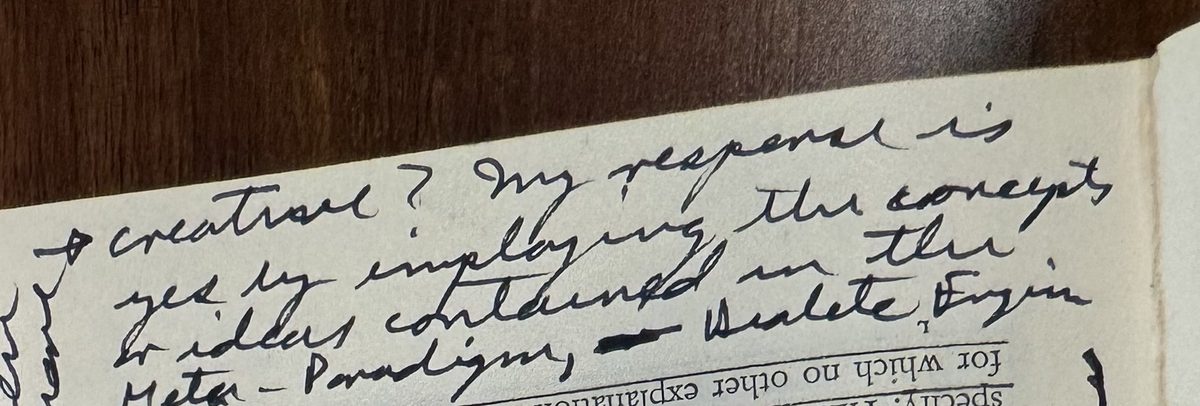 → creative? My response is
yes by employing the concepts
or ideas contained in the
Meta-Paradigm, Engine
for which no other explanation
specify.